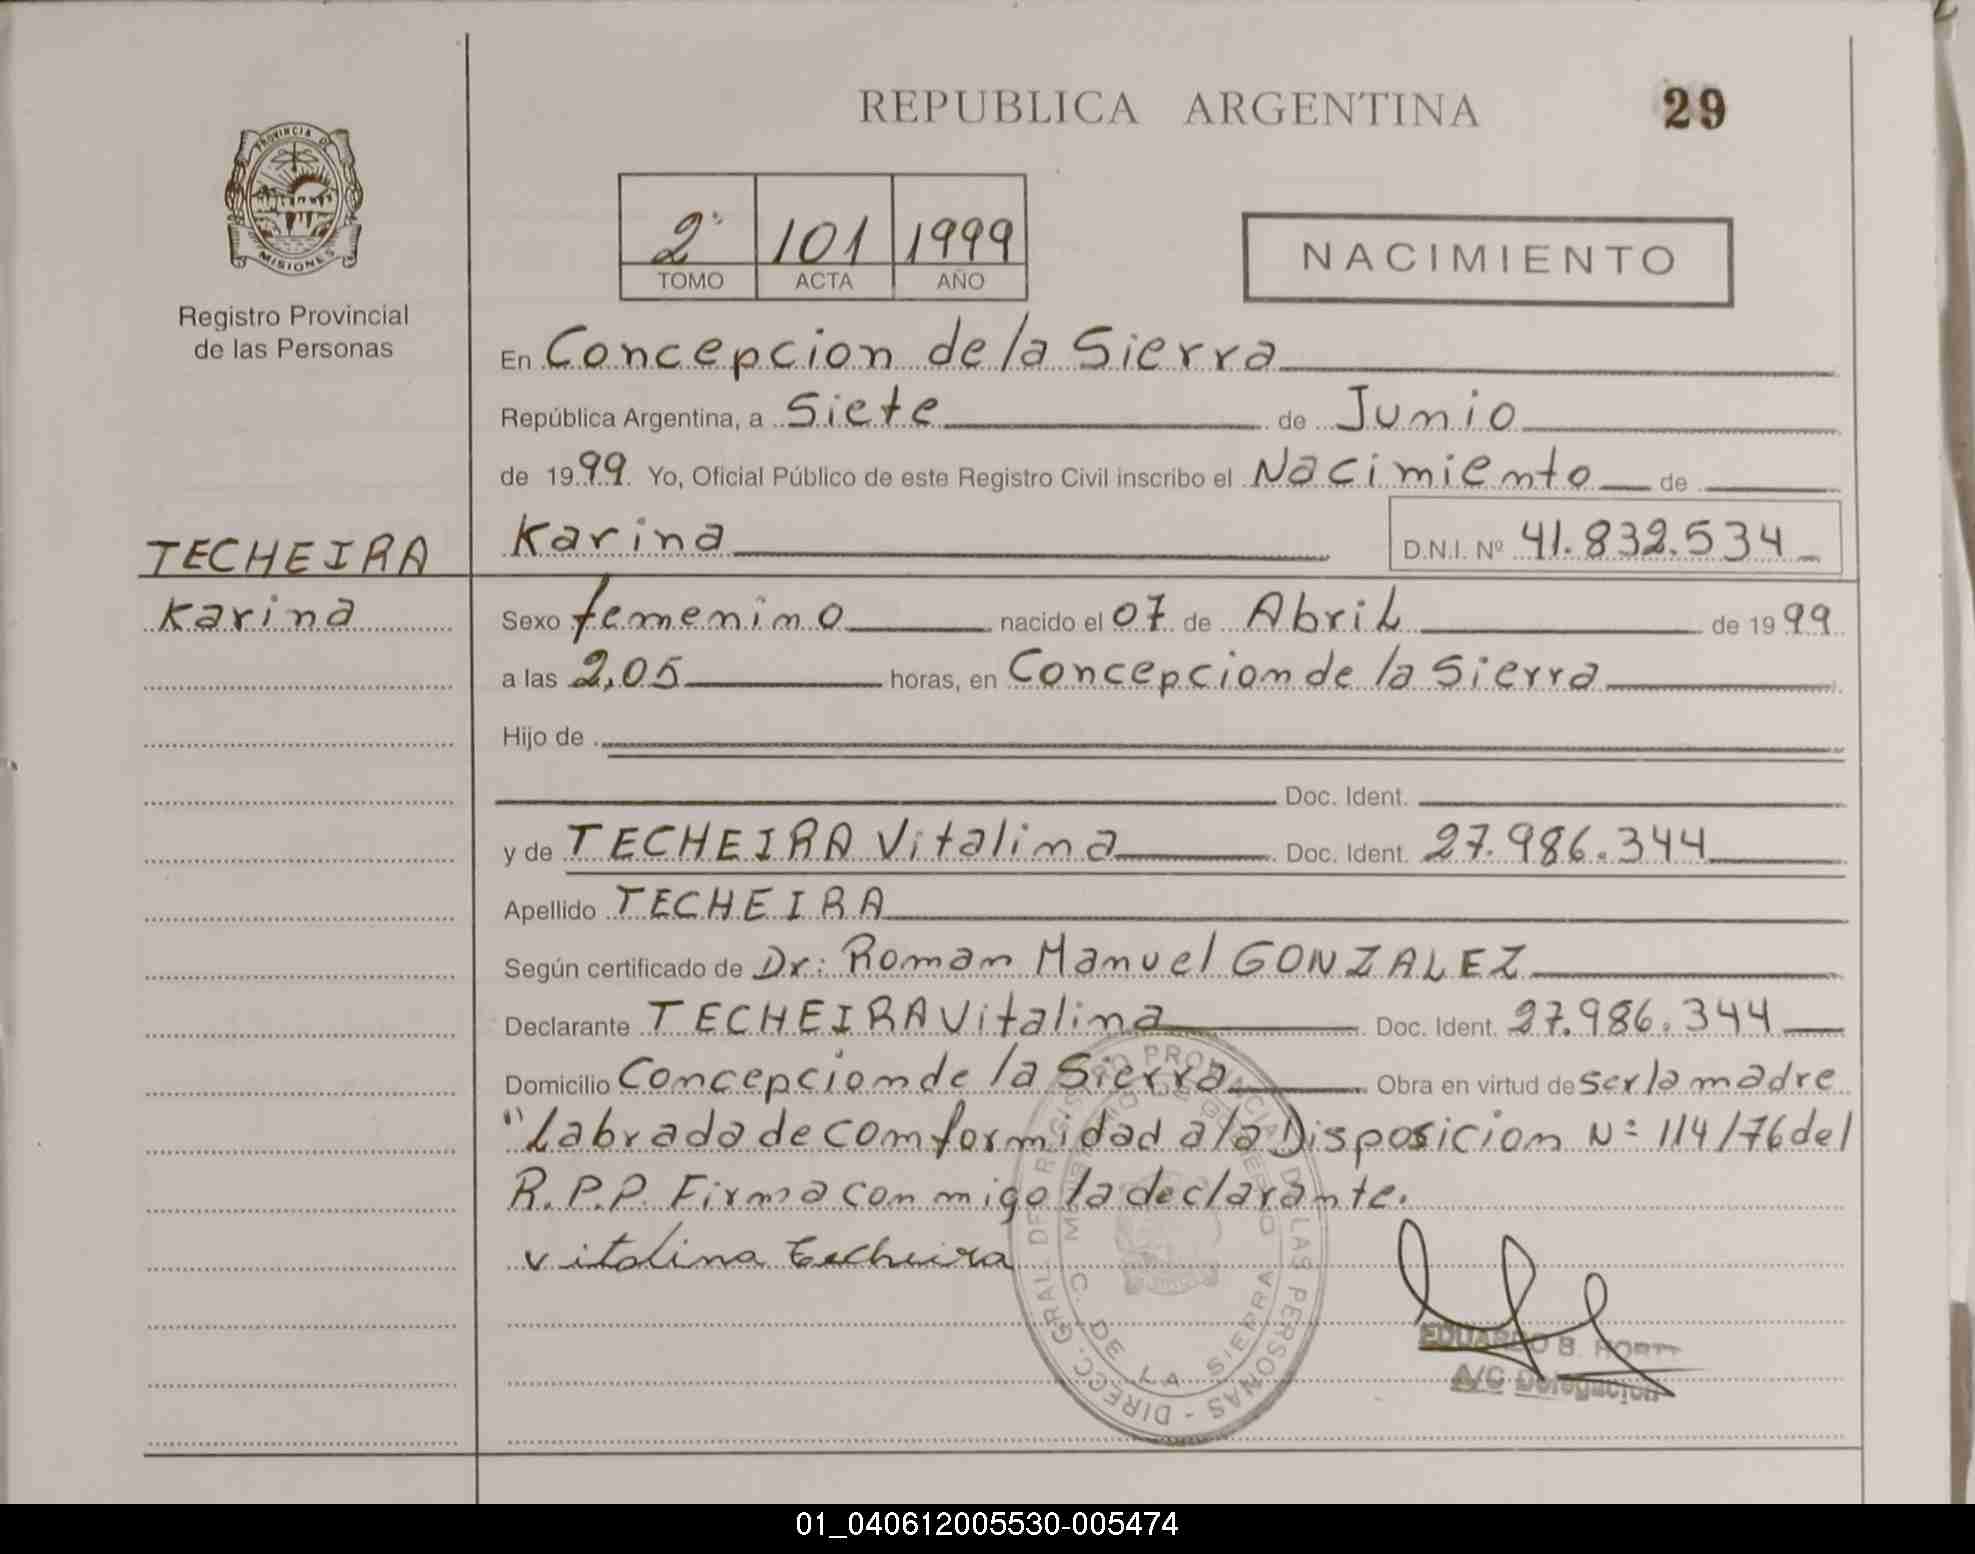 REPUBLICA ARGENTINA
29
PROVINCIA DE
MISIONES
Registro Provincial
de las Personas
2º 101 1999
TOMO ACTA AÑO
NACIMIENTO
En Concepcion de la Sierra
República Argentina, a Siete de Junio
de 1999 Yo, Oficial Público de este Registro Civil inscribo el Nacimiento de
TECHEIRA
Karina
Karina D.N.I. Nº 41.832.534
Sexo femenino nacido el 07 de Abril de 1999
a las 2,05 horas, en Concepcion de la Sierra
Hijo de
Doc. Ident.
y de TECHEIRA Vitalina Doc. Ident. 27.986.344
Apellido TECHEIRA
Según certificado de Dr: Roman Manuel GONZALEZ
Declarante TECHEIRA Vitalina Doc. Ident. 27.986.344
Domicilio Concepcion de la Sierra Obra en virtud de ser la madre
"Labrada de conformidad a la Disposicion Nº 114/76 del
R.P.P. Firma conmigo la declarante.
Vitalina Techeira
DIRECC. GRAL. DE REGISTRO PROVINCIAL DE LAS PERSONAS -
C. DE LA SIERRA
EDUARDO B.
A/C Delegacion
01_040612005530-005474